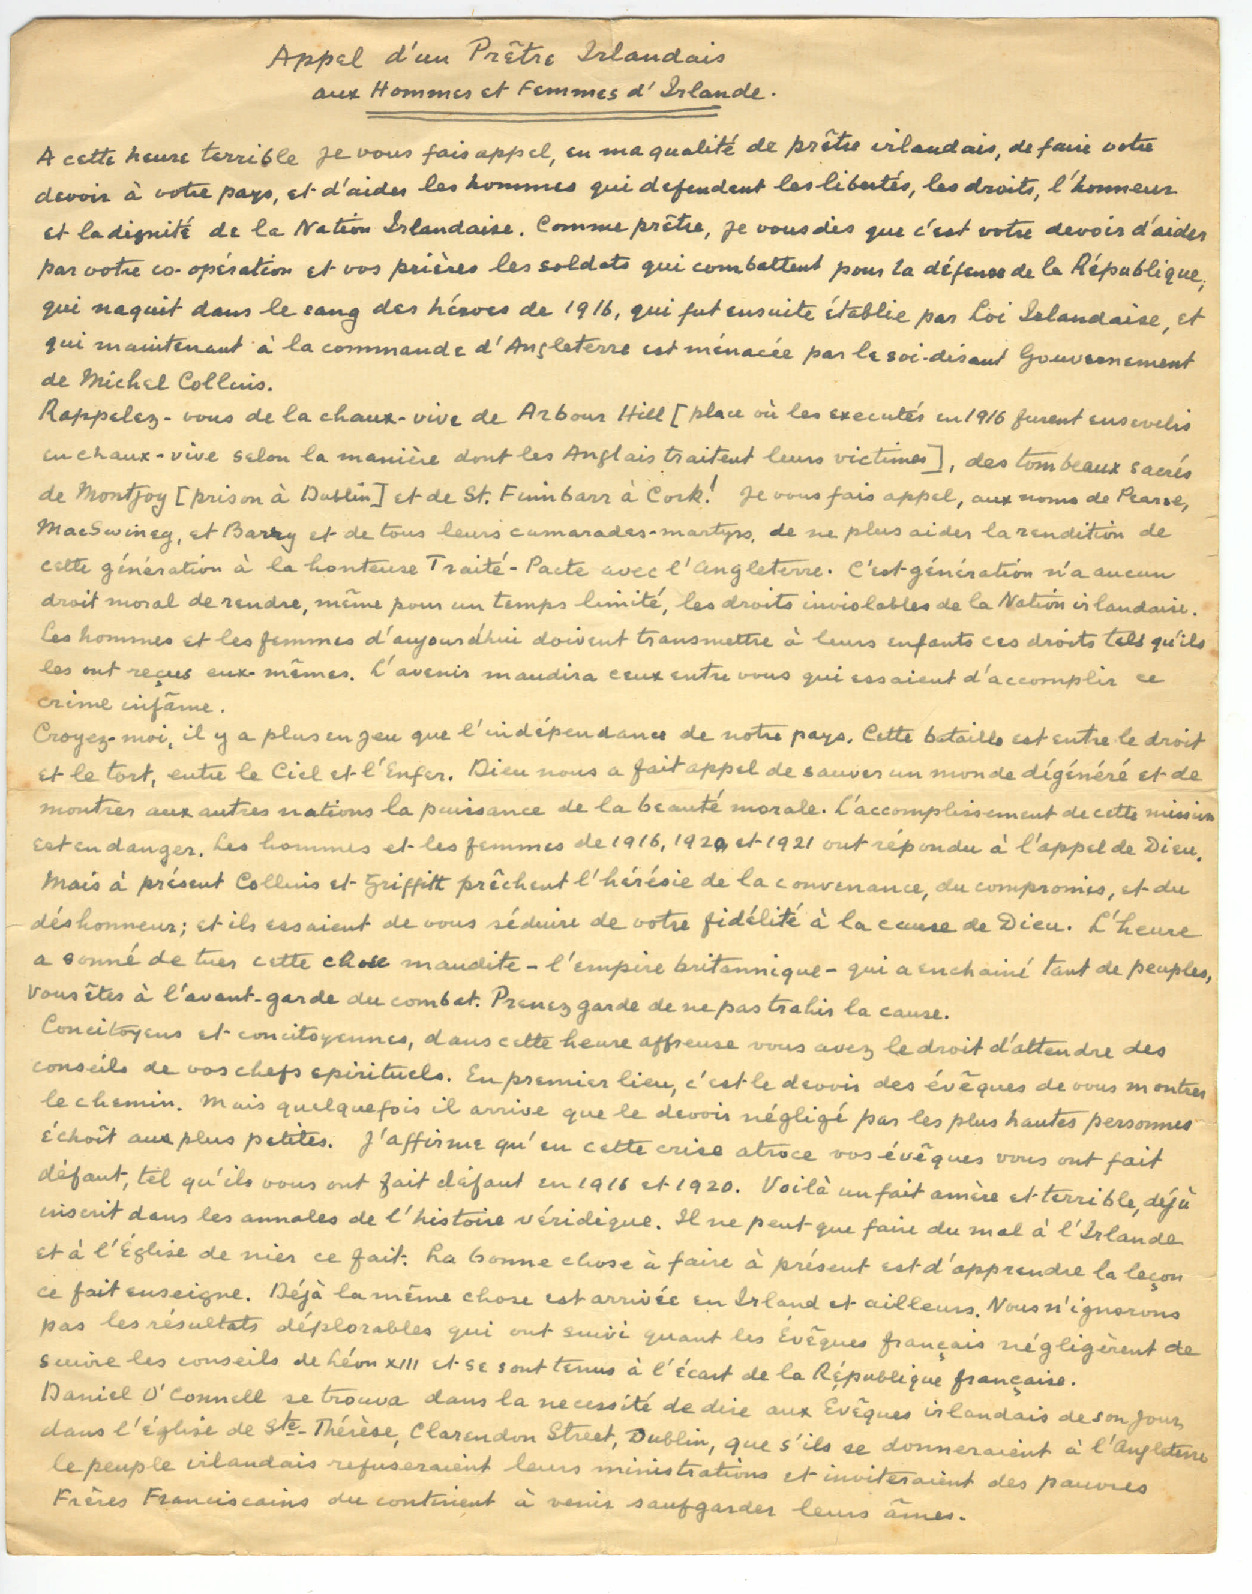 Appel d'un Prêtre Irlandais
aux Hommes et Femmes d'Irlande.
A cette heure terrible je vous fais appel, en ma qualité de prêtre irlandais, de faire votre
devoir à votre pays, et d'aider les hommes qui defendent les libertés, les droits, l'honneur
et la dignité de la Nation Irlandaise. Comme prêtre, je vous dis que c'est votre devoir d'aider
par votre co-opération et vos prières les soldats qui combattent pour la défense de la République,
qui naquit dans le sang des héroes de 1916, qui fut ensuite établie par Loi Irlandaise, et
qui maintenant à la commande d'Angleterre est ménacée par le soi-disant Gouvernement
de Michel Collins.
Rappelez-vous de la chaux-vive de Arbour Hill [place où les executés en 1916 furent ensevelis
en chaux-vive selon la manière dont les Anglais traitent leurs victimes], des tombeaux sacrés
de Montjoy [prison à Dublin] et de St. Finnbarr à Cork! Je vous fais appel, aux noms de Pearse,
MacSwiney, et Barry et de tous leurs camarades-martyrs, de ne plus aider la rendition de
cette génération à la honteuse Traité-Pacte avec l'Angleterre. C'est génération n'a aucun
droit moral de rendre, même pour un temps limité, les droits inviolables de la Nation irlandaise.
Les hommes et les femmes d'aujourd'hui doivent transmettre à leurs enfants ces droits tels qu'ils
les ont reçues eux-mêmes. L'avenir maudira ceux entre vous qui essaient d'accomplir ce
crime infâme.
Croyez-moi, il y a plus en jeu que l'indépendance de notre pays. Cette bataille est entre le droit
et le tort, entre le Ciel et l'Enfer. Dieu nous a fait appel de sauver un monde dégénéré et de
montrer aux autres nations la puissance de la beauté morale. L'accomplissement de cette mission
est en danger. Les hommes et les femmes de 1916, 1920 et 1921 ont répondu à l'appel de Dieu.
Mais à présent Collins et Griffith prêchent l'hérésie de la convenance, du compromis, et du
déshonneur; et ils essaient de vous séduire de votre fidélité à la cause de Dieu. L'heure
a sonné de tuer cette chose maudite - l'empire britannique - qui a enchainé tant de peuples,
Vous êtes à l'avant-garde du combat. Prenez garde de ne pas trahir la cause.
Concitoyens et concitoyennes, dans cette heure affreuse vous avez le droit d'attendre des
conseils de vos chefs spirituels. En premier lieu, c'est le devoir des évêques de vous montrer
le chemin. Mais quelquefois il arrive que le devoir négligé par les plus hautes personnes
échoît aux plus petites. J'affirme qu'en cette crise atroce vos évêques vous ont fait
défaut, tel qu'ils vous ont fait défaut en 1916 et 1920. Voilà un fait amère et terrible, déjà
inscrit dans les annales de l'histoire véridique. Il ne peut que faire du mal à l'Irlande
et à l'Église de nier ce fait. La bonne chose à faire à présent est d'apprendre la leçon
ce fait enseigne. Déjà la même chose est arrivée en Irland et ailleurs. Nous n'ignorons
pas les résultats déplorables qui ont suivi quant les Évêques français négligèrent de
suivre les conseils de Léon XIII et se sont tenus à l'écart de la République française.
Daniel O'Connell se trouva dans la necessité de dire aux Evêques irlandais de son jour,
dans l'église de Ste-Thérèse, Clarendon Street, Dublin, que s'ils se donneraient à l'Angleterre
le peuple irlandais refuseraient leurs ministrations et inviteraient des pauvres
Frères Franciscains du continent à venir saufgarder leurs âmes.